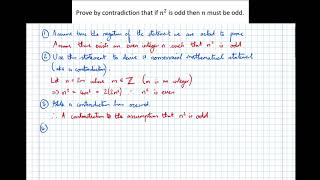 Prove by contradiction that if n² is odd then n must be odd.
① Assume true the negation of the statement we are asked to prove
Assume there exists an even integer n such that n² is odd
② Use this statement to derive a nonsensical mathematical statement
(aka a contradiction).
Let n = 2m where m ∈ ℤ (m is an integer)
⇒ n² = 4m² = 2(2m²) ∴ n² is even
③ a contradiction has occurred
∴ A contradiction to the assumption that n² is odd
④